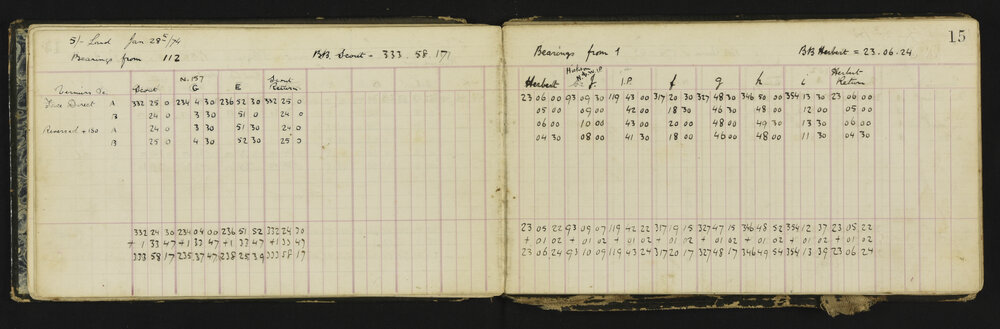 S/- Land Jan 28th/74
Bearings from 112 BB. Scout - 333. 58. 17
N. 157 Scout
Verniers &c. Scout G E Return
Face Direct A 332 25 0 234 4 30 236 52 30 332 25 0
B 24 0 3 30 51 0 24 0
Reversed + 180 A 24 0 3 30 51 30 24 0
B 25 0 4 30 52 30 25 0
332 24 30 234 04 00 236 51 52 332 24 30
+ 1 33 47 + 1 33 47 + 1 33 47 + 1 33 47
333 58 17 235 37 47 238 25 39 333 58 17
15
Bearings from 1 BB Herbert = 23. 06. 24
Herbert I.P f g h i Herbert Return
23 06 00 93 09 30 119 43 00 317 20 30 327 48 30 346 50 00 354 13 30 23 06 00
05 00 09 00 42 00 18 30 46 30 48 00 12 00 05 00
06 00 10 00 43 00 20 00 48 00 49 30 13 30 06 00
04 30 08 00 41 30 18 00 46 00 48 00 11 30 04 30
23 05 22 93 09 07 119 42 22 317 19 15 327 47 15 346 48 52 354 12 37 23 05 22
+ 01 02 + 01 02 + 01 02 + 01 02 + 01 02 + 01 02 + 01 02 + 01 02
23 06 24 93 10 09 119 43 24 317 20 17 327 48 17 346 49 54 354 13 39 23 06 24